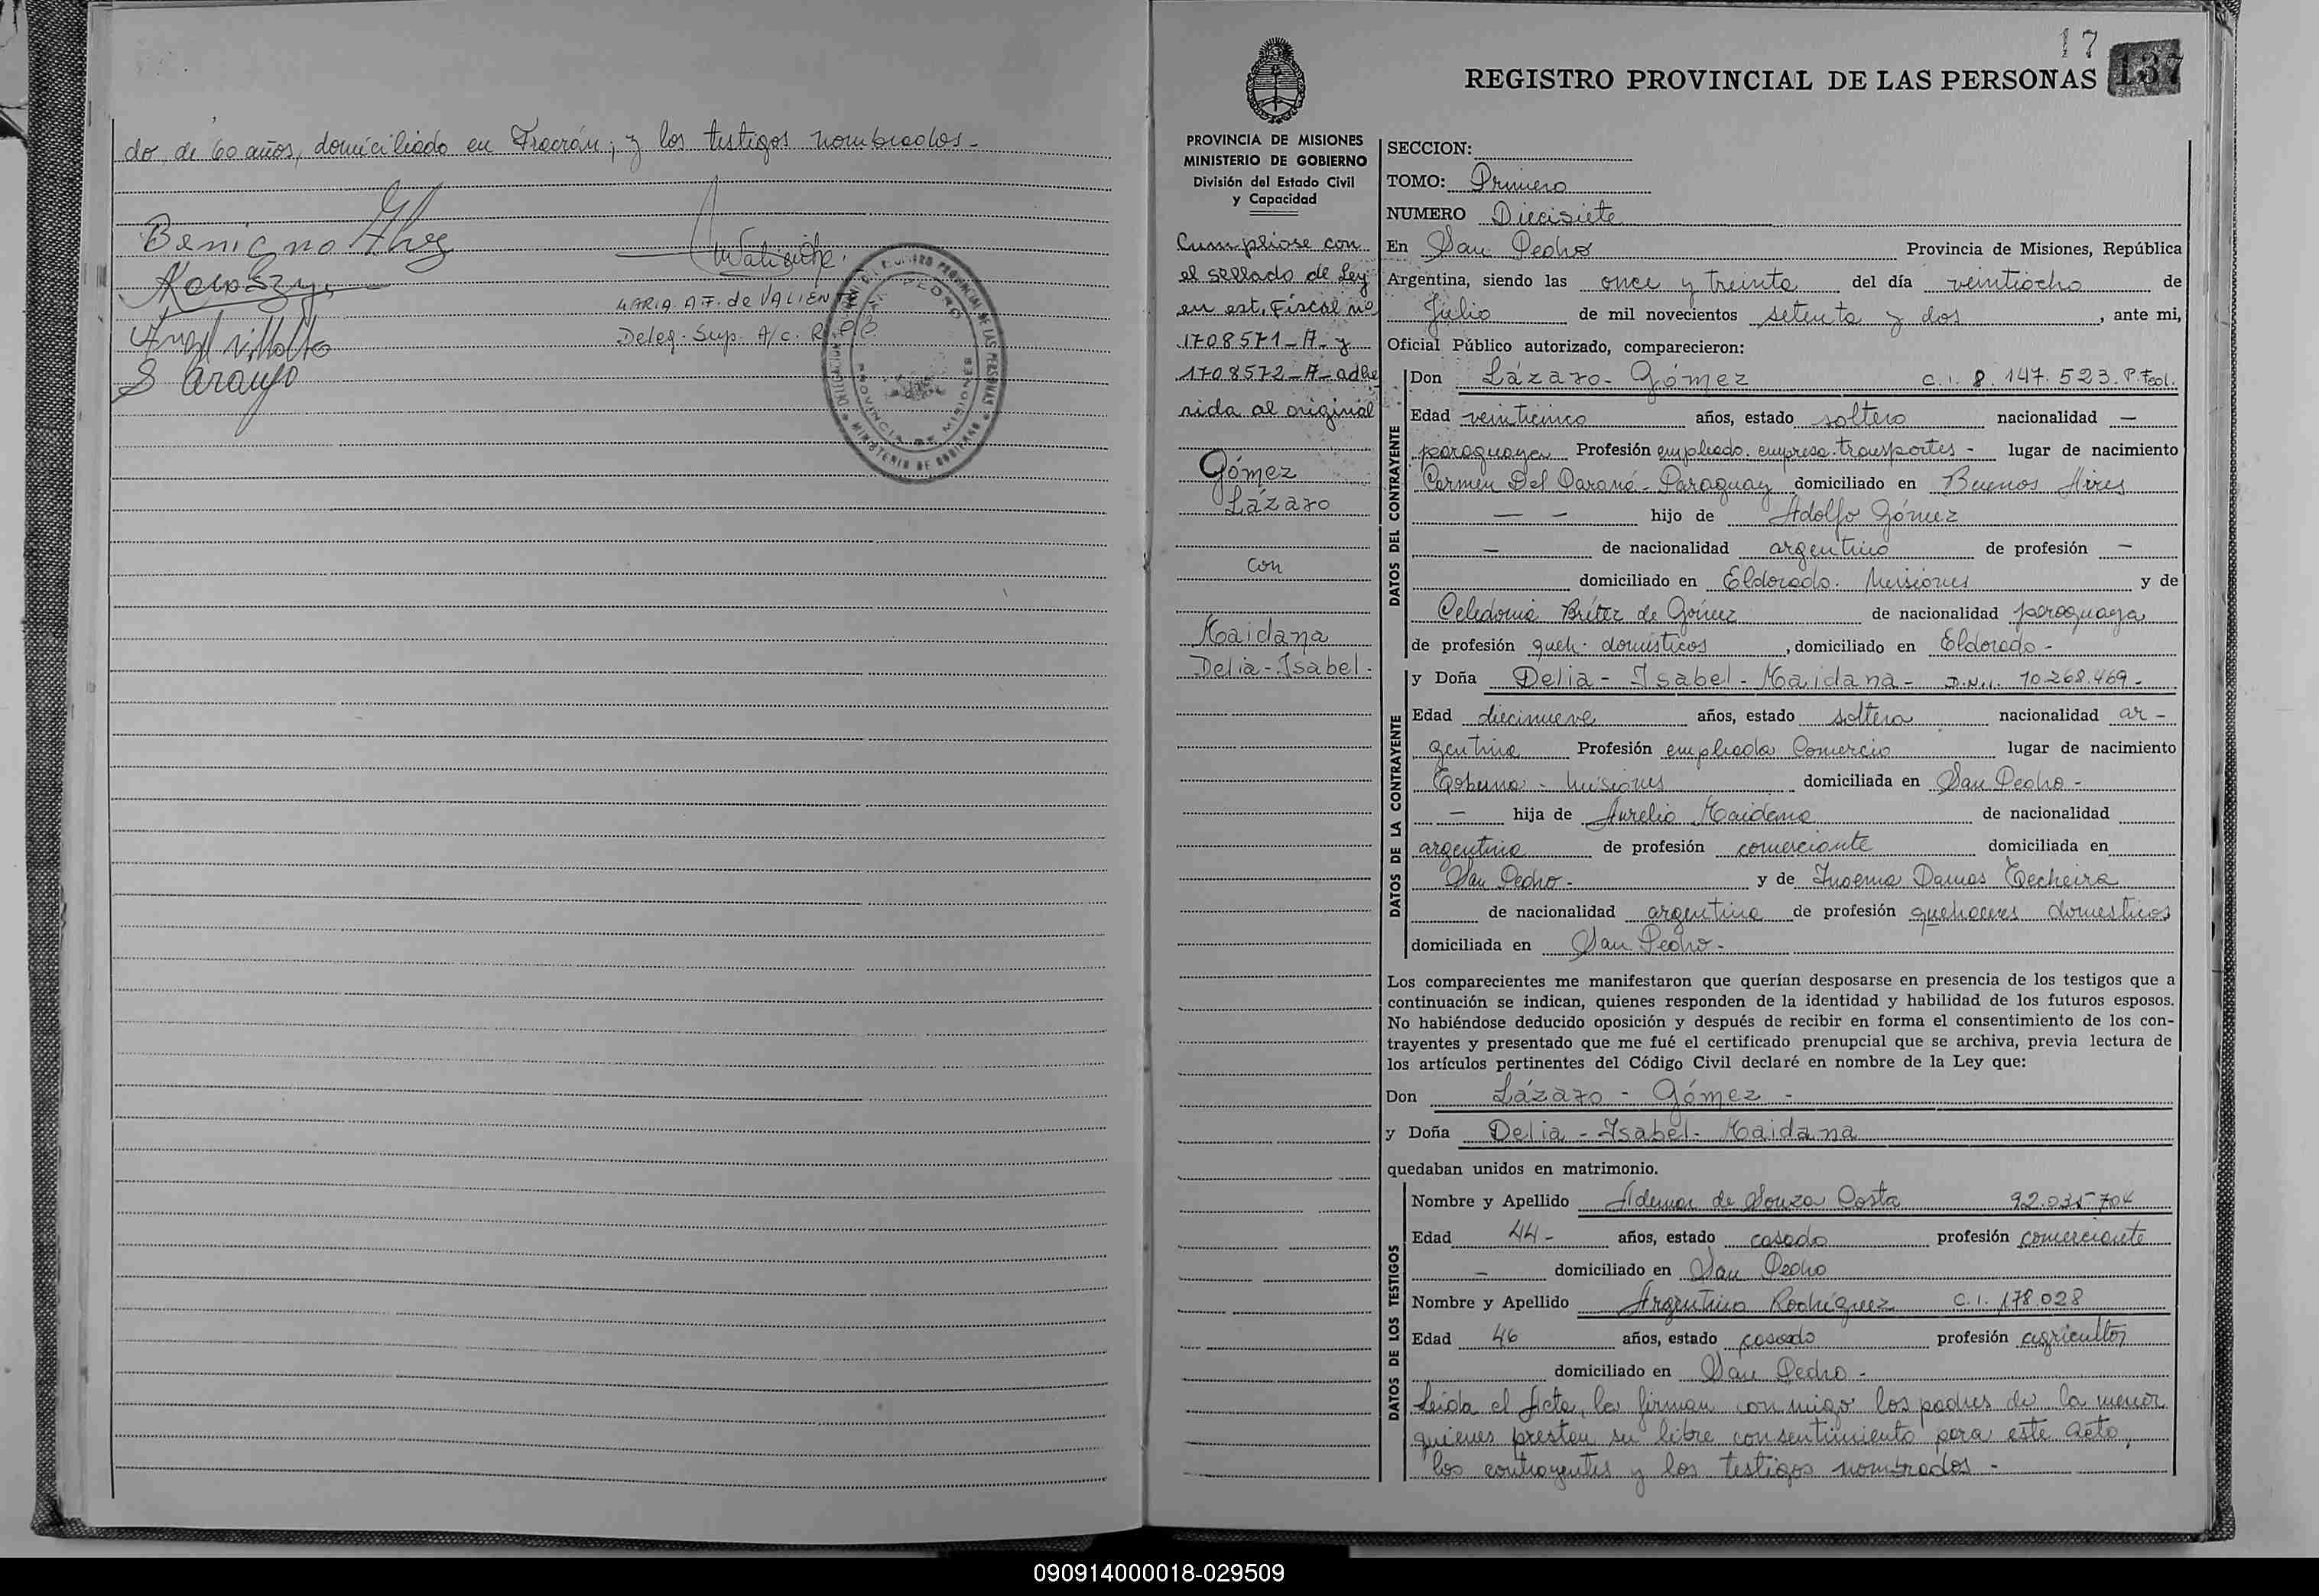 do, de 60 años, domiciliado en Fracrán, y los testigos nombrados-
Benigno
Angel Villalba
S Araujo
MARIA A F. de VALIENTE
Deleg. Sup. A/c. R
PROVINCIA DE MISIONES
MINISTERIO DE GOBIERNO
17
REGISTRO PROVINCIAL DE LAS PERSONAS 137
PROVINCIA DE MISIONES
MINISTERIO DE GOBIERNO
División del Estado Civil
y Capacidad
Cumpliose con
el sellado de Ley
en est. Fiscal nº
1708571-A- y
1708572-A- adhe
rida al original
Gómez
Lázaro
con
Maidana
Delia-Isabel-
SECCION:
TOMO: Primero
NUMERO Diecisiete
En San Pedro Provincia de Misiones, República
Argentina, siendo las once y treinta del día veintiocho de
Julio de mil novecientos setenta y dos, ante mi,
Oficial Público autorizado, comparecieron:
DATOS DEL CONTRAYENTE
Don Lázaro- Gómez C.I. 8.147.523. P. Fed.
Edad veinticinco años, estado soltero nacionalidad —
paraguaya Profesión empleado empresa transportes - lugar de nacimiento
Carmen Del Paraná- Paraguay domiciliado en Buenos Aires
— — hijo de Adolfo Gómez
— de nacionalidad argentino de profesión —
domiciliado en Eldorado. Misiones y de
Celedonia de Gómez de nacionalidad paraguaya
de profesión queh. domésticos, domiciliado en Eldorado-
DATOS DE LA CONTRAYENTE
y Doña Delia- Isabel- Maidana- D.N.I. 10.268.469-
Edad diecinueve años, estado soltera nacionalidad ar-
gentina Profesión empleada Comercio lugar de nacimiento
Misiones domiciliada en San Pedro-
— hija de Aurelio Maidana de nacionalidad
argentina de profesión comerciante domiciliada en
San Pedro- y de Damas Techeira
de nacionalidad argentina de profesión quehaceres domesticos
domiciliada en San Pedro-
Los comparecientes me manifestaron que querían desposarse en presencia de los testigos que a
continuación se indican, quienes responden de la identidad y habilidad de los futuros esposos.
No habiéndose deducido oposición y después de recibir en forma el consentimiento de los con-
trayentes y presentado que me fué el certificado prenupcial que se archiva, previa lectura de
los artículos pertinentes del Código Civil declaré en nombre de la Ley que:
Don Lázaro - Gómez -
y Doña Delia - Isabel- Maidana
quedaban unidos en matrimonio.
DATOS DE LOS TESTIGOS
Nombre y Apellido Ademar de Souza Costa 92.035704
Edad 44- años, estado casado profesión comerciante
— domiciliado en San Pedro
Nombre y Apellido Argentino Rodríguez C.I. 178.028
Edad 46 años, estado casado profesión agricultor
domiciliado en San Pedro-
Leida el Acta, la firman conmigo los padres de la menor
quienes prestan su libre consentimiento para este acto,
los contrayentes y los testigos nombrados-
090914000018-029509